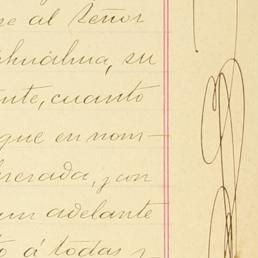 se al Señor
chihuahua, su
ente, cuanto
que en nom-
berada, y con
um adelante
to á todas